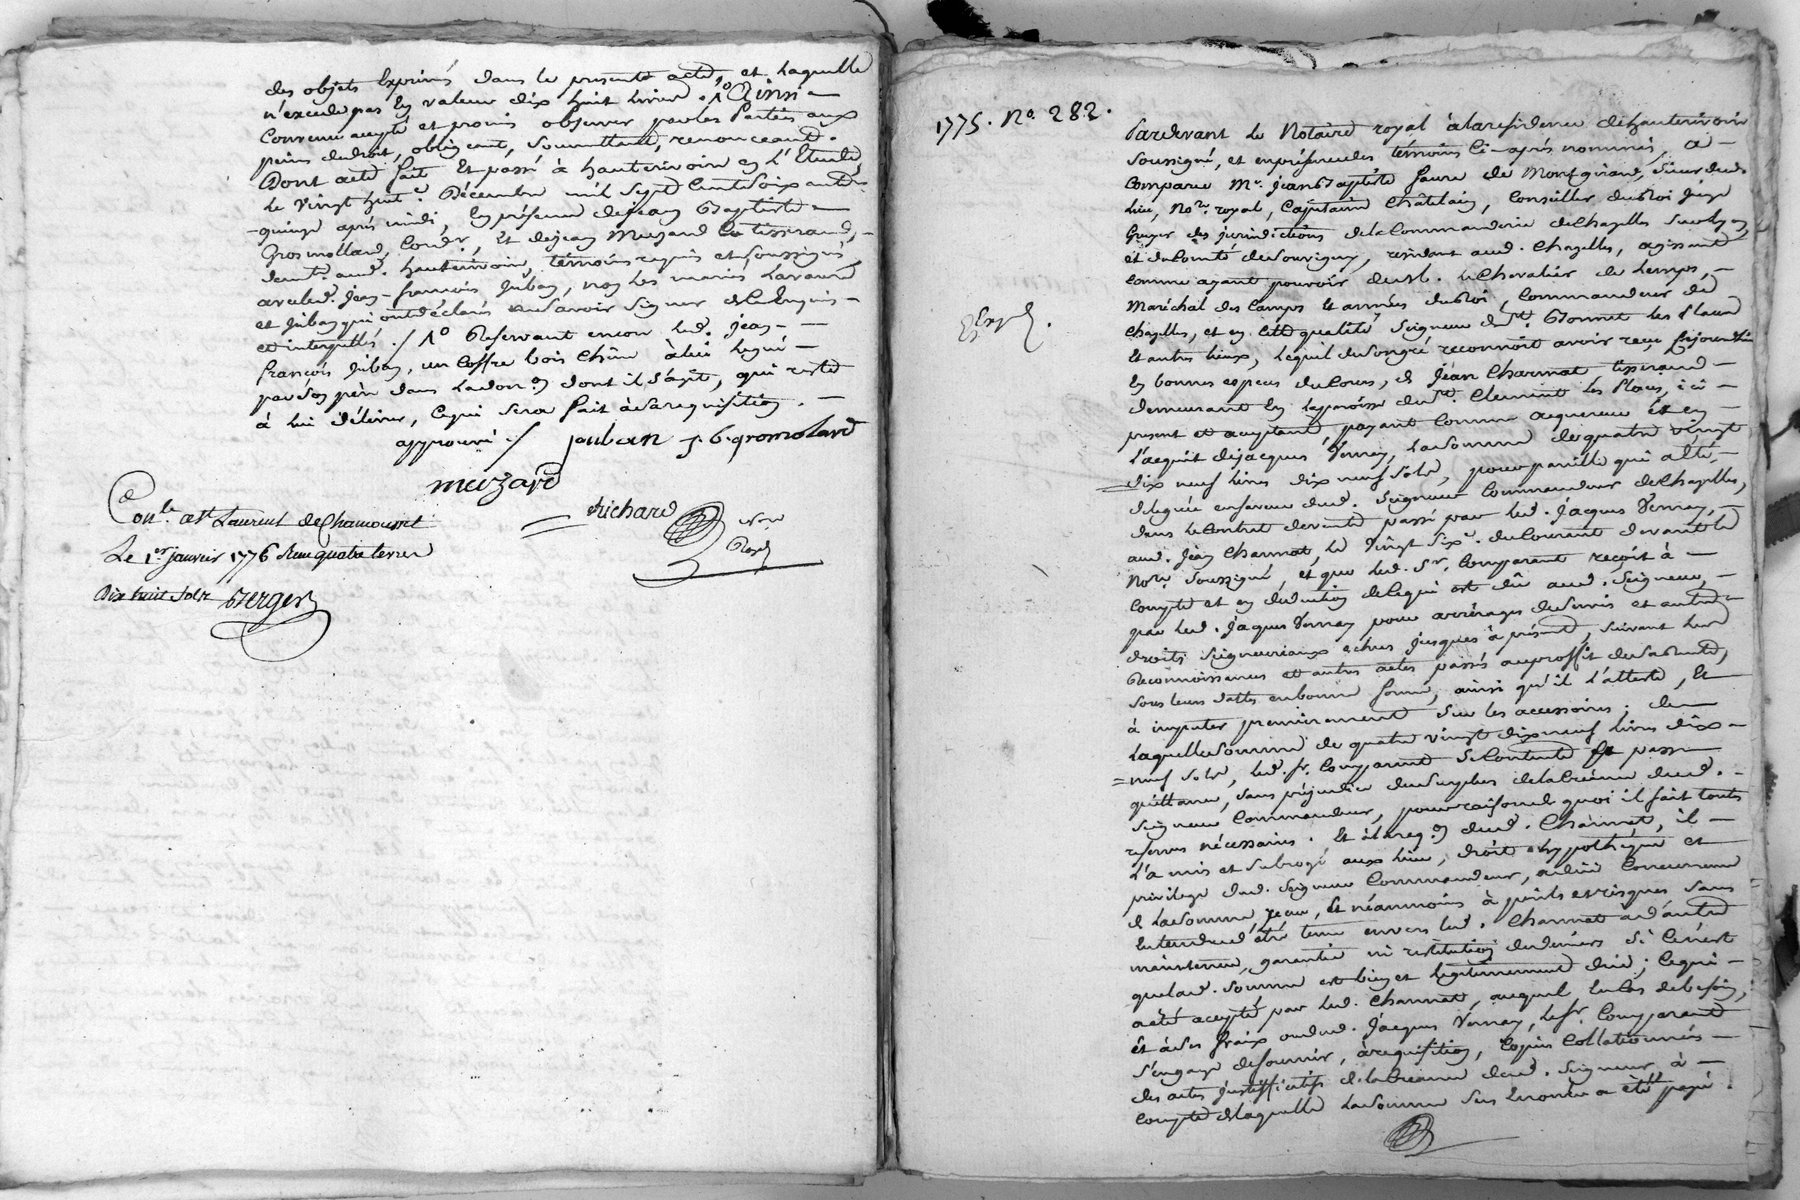 des objets Exprimés dans le présent acte, et laquelle
n'excede pas En valeur dix huit livres. 1° Ainsi
Convenu accepté et promis observer par les Parties aux
peines de droit, obligeant, soumettant, renonceant.
Dont acte fait Et passé à hauterivoire En L'Etude,
Le vingt huit.e Décembre mil sept Cent soixante
quinze après midi, En présence de jean Baptiste
Grosmollard, Cord.r, Et de jean Muzard tisserand,
dem.t aud. hauterivoire, témoins requis et soussignés
avec led. jean-françois juban, non les mariés
et juban qui ont déclaré ne savoir signer de ce Enquis
et interpellés ./. 1° Reservant encore led. jean
françois juban, un Coffre bois Chêne à lui legué
par son père dans la don.on dont il s'agit, qui reste
à lui délivrer, Cequi sera fait à sa requisition.
approuvé ./. jouban j. b. gromolard
muzard
Richard
No.re
Royal
Con.lé a St Laurent de Chamousset
Le 1.er janvier 1776 Reçu quatre livres
dix huit sols Berger
1775. No. 282.
Pardevant Le Notaire royal à la residence de hauterivoire
soussigné, et en présence des témoins Ci-après nommés, a
Comparu M.r jean Baptiste faure de Montguirand, sieur dud.
lieu, No.re royal, Capitaine Châtelain, Conseiller du Roi juge
Gruyer des jurisdictions de la Commanderie de Chazelles sur Lyon
et du Comté de souvigny, residant aud. Chazelles, agissant
Comme ayant pouvoir de M. le Chevalier de Lemps,
Maréchal des Camps Et armées du Roi, Commandeur de
Chazelles, et en Cette qualité seigneur de St Bonnet les Places
Et autres lieux, Lequel de son gré reconnoit avoir reçu aujourd'hui
En bonnes especes du Cours, de jean Charmat tisserand
demeurant En la paroisse de St Clement les Places, ici
présent et acceptant, payant Comme acquereur et en
L'acquit de jacques Vernay, La somme de quatre vingt
dix neuf livres dix neuf sols, pour pareille qui a été
deleguée en faveur dud. seigneur Commandeur de Chazelles,
dans le Contrat de vente passé par led. jacques Vernay,
aud. jean Charmat, Le vingt six.e du Courant devant le
No.re soussigné, et que led. S.r Comparant reçoit à
Compte et en deduction de Ce qui est dû aud. seigneur
par led. jacques Vernay pour arrérages de servis et autres
droits seigneuriaux echus jusques à présent, suivant les
Reconnoissances et autres actes passés au proffit de sa rente,
sous leurs dattes en bonne forme, ainsi qu'il L'atteste, Et
à imputer premierement sur les accessoires; de
Laquelle somme de quatre vingt dix neuf livres dix
neuf sols, led. Sr. Comparant se Contente Et passe
quittance, sans préjudice du surplus de la Créance dud.
seigneur Commandeur, pour raison de quoi il fait toutes
reserves nécessaires. Et à la req.on dud. Charmat, il
L'a mis et subrogé aux lieu, droit, hypothéque et
privilege dud. seigneur Commandeur, à due Concurrence
de la somme reçue, Et néanmoins à périls et risques sans
Entendre être tenu envers led. Charmat à d'autre
maintenue, garantie ni restitution de deniers si Ce n'est
que lad. somme est bien et legitimement due; Cequi
a été accepté par led. Charmat, auquel En Cas de besoin,
et à ses fraix ou dud. jacques Vernay, led. Sr. Comparant
s'engage de fournir, à requisition, Copies Collationnées
des actes justifficatifs de la Créance dud. seigneur à
Compte de laquelle La somme sus Enoncée a été payé.